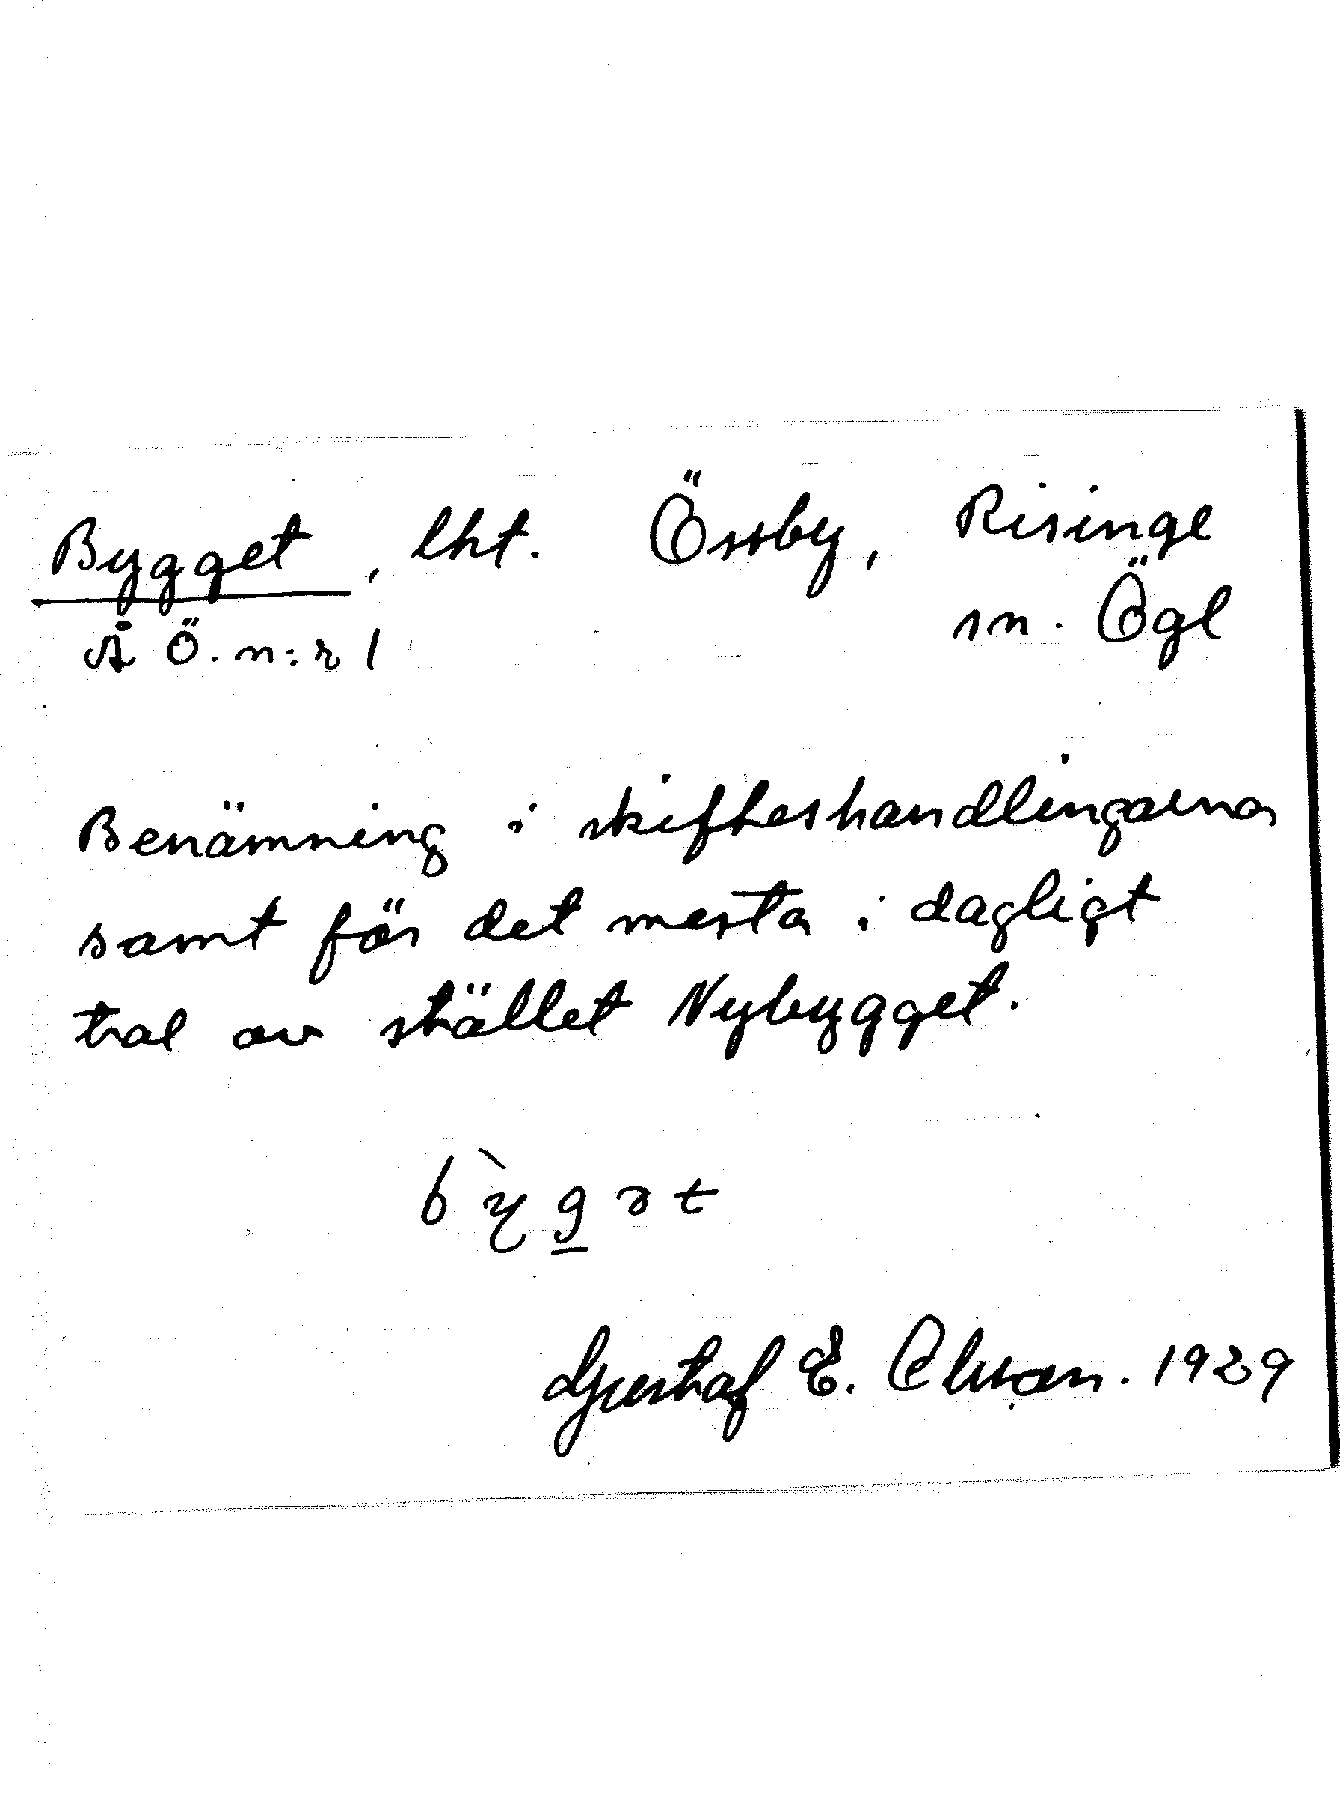 Bygget, lht. Össby, Risinge
Å Ö. n:r 1 sn. Ögl
Benämning i skifteshandlingarna
samt för det mesta i dagligt
tal av stället Nybygget.
Gustaf E. 1929